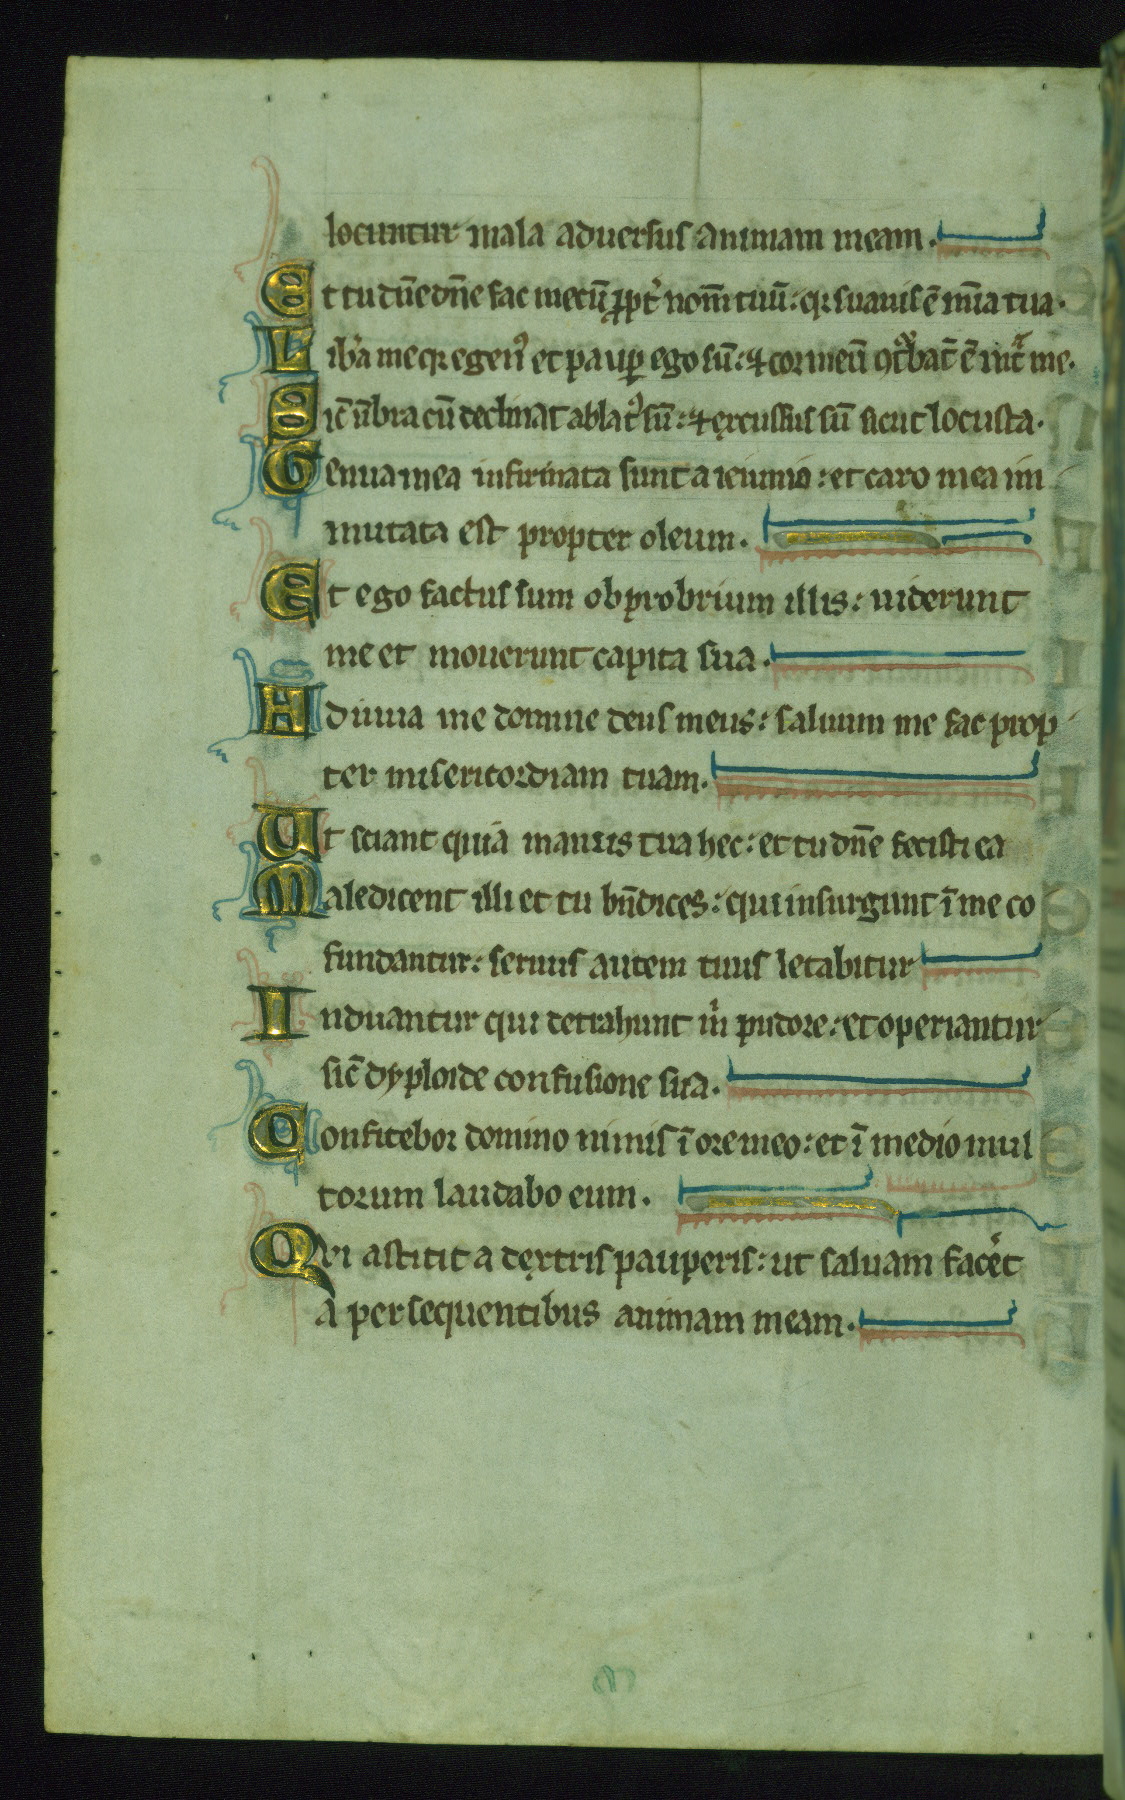 locuntur mala aduersus animam meam.
Et tu dñe dñe fac mecũ ꝓpt̉ nom̃ tuũ: qꝛ suauis ẽ mĩa tua.
Lib̉a me qꝛ egenꝰ et paup̱ ego sũ: ⁊ cor meũ ꝯt᷑bat̃ ẽ int᷑ me.
Sic̃ ũbra cũ declinat ablatꝰ sũ: ⁊ excussus sũ sicut locusta.
Genua mea infirmata sunt a ieiunio: et caro mea im
mutata est propter oleum.
Et ego factus sum obprobrium illis: uiderunt
me et mouerunt capita sua.
Adiuua me domine deus meus: saluum me fac prop
ter misericordiam tuam.
Ut sciant quia manus tua hec: et tu dñe fecisti ea
Maledicent illi et tu bñdices: qui insurgunt ĩ me co
fundantur: seruus autem tuus letabitur
Induantur qui detrahunt m̉ pudore: et operiantur
sic̃ dyploide confusione sua.
Confitebor domino nimis ĩ ore meo: et ĩ medio mul
torum laudabo eum.
Qui astitit a dextris pauperis: ut saluam facet̉
a persequentibus animam meam.